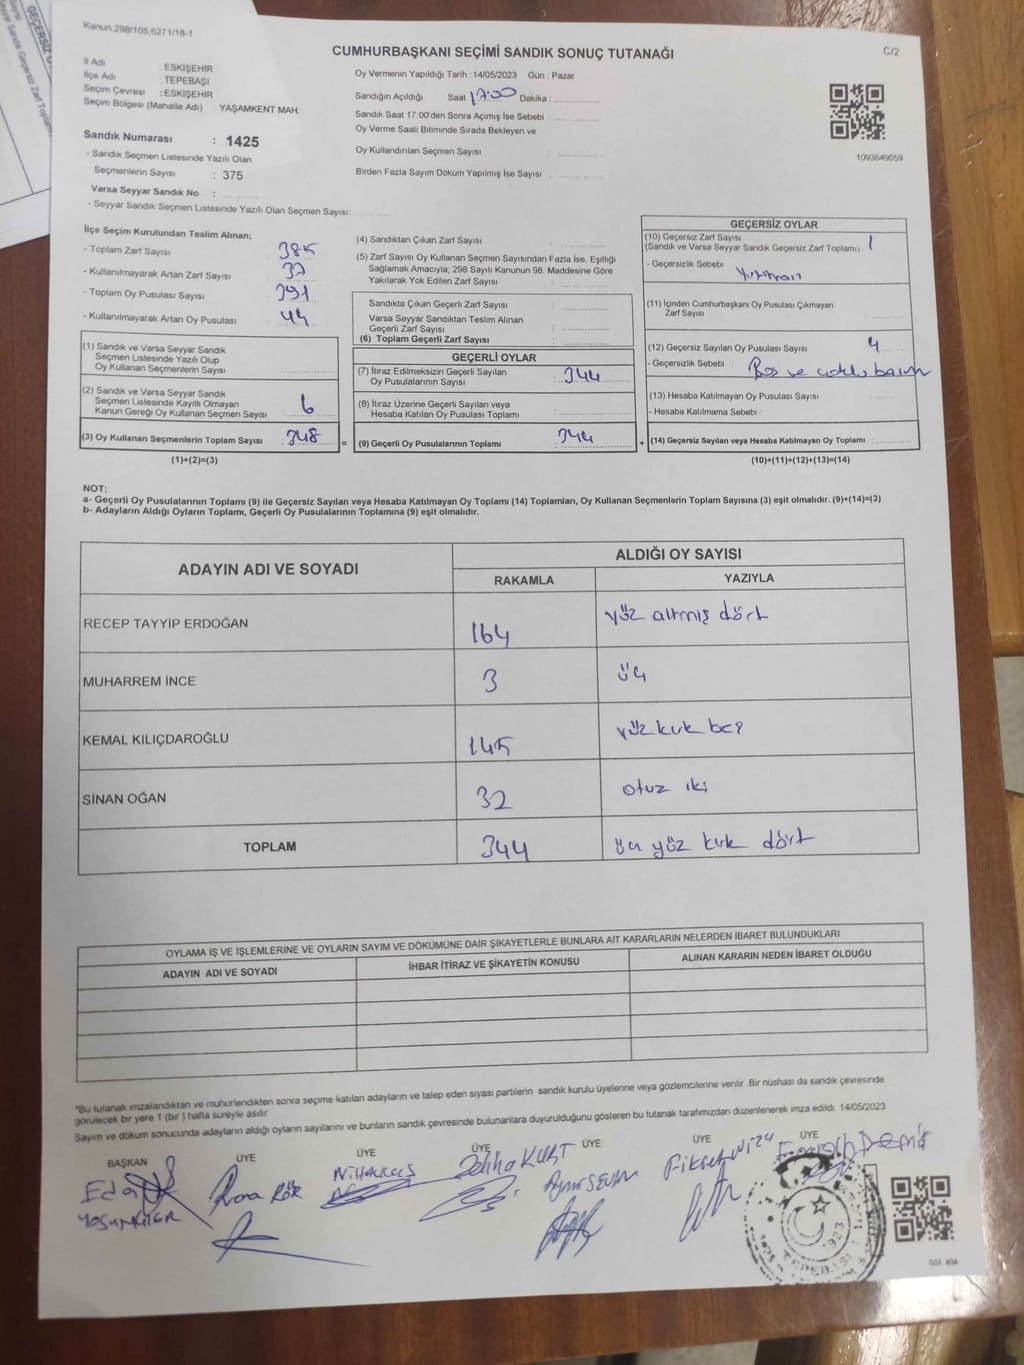 Kanun.298/105,6271/18-1
CUMHURBAŞKANI SEÇİMİ SANDIK SONUÇ TUTANAĞI
C/2
İl Adı : ESKİŞEHİR
İlçe Adı : TEPEBAŞI
Seçim Çevresi : ESKİŞEHİR
Seçim Bölgesi (Mahalle Adı) : YAŞAMKENT MAH.
Sandık Numarası : 1425
- Sandık Seçmen Listesinde Yazılı Olan
Seçmenlerin Sayısı : 375
Varsa Seyyar Sandık No :
- Seyyar Sandık Seçmen Listesinde Yazılı Olan Seçmen Sayısı:
Oy Vermenin Yapıldığı Tarih : 14/05/2023 Gün : Pazar
Sandığın Açıldığı Saat 17:00 Dakika :
Sandık Saat 17:00'den Sonra Açımış İse Sebebi :
Oy Verme Saati Bitiminde Sırada Bekleyen ve
Oy Kullandırılan Seçmen Sayısı :
Birden Fazla Sayım Döküm Yapılmış İse Sayısı :
1093649059
İlçe Seçim Kurulundan Teslim Alınan;
- Toplam Zarf Sayısı : 385
- Kullanılmayarak Artan Zarf Sayısı : 37
- Toplam Oy Pusulası Sayısı : 391
- Kullanılmayarak Artan Oy Pusulası : 44
(1) Sandık ve Varsa Seyyar Sandık
Seçmen Listesinde Yazılı Olup
Oy Kullanan Seçmenlerin Sayısı :
(2) Sandık ve Varsa Seyyar Sandık
Seçmen Listesinde Kayıtlı Olmayan
Kanun Gereği Oy Kullanan Seçmen Sayısı : 6
(3) Oy Kullanan Seçmenlerin Toplam Sayısı : 348
(1)+(2)=(3)
(4) Sandıktan Çıkan Zarf Sayısı :
(5) Zarf Sayısı Oy Kullanan Seçmen Sayısından Fazla İse, Eşitliği
Sağlamak Amacıyla; 298 Sayılı Kanunun 98. Maddesine Göre
Yakılarak Yok Edilen Zarf Sayısı :
Sandıkta Çıkan Geçerli Zarf Sayısı :
Varsa Seyyar Sandıktan Teslim Alınan
Geçerli Zarf Sayısı :
(6) Toplam Geçerli Zarf Sayısı :
GEÇERLİ OYLAR
(7) İtiraz Edilmeksizin Geçerli Sayılan
Oy Pusulalarının Sayısı : 344
(8) İtiraz Üzerine Geçerli Sayılan veya
Hesaba Katılan Oy Pusulası Toplamı :
= (9) Geçerli Oy Pusulalarının Toplamı : 344
GEÇERSİZ OYLAR
(10) Geçersiz Zarf Sayısı : 1
(Sandık ve Varsa Seyyar Sandık Geçersiz Zarf Toplamı)
- Geçersizlik Sebebi :
(11) İçinden Cumhurbaşkanı Oy Pusulası Çıkmayan
Zarf Sayısı :
(12) Geçersiz Sayılan Oy Pusulası Sayısı : 4
- Geçersizlik Sebebi : Boş ve
(13) Hesaba Katılmayan Oy Pusulası Sayısı :
- Hesaba Katılmama Sebebi :
+ (14) Geçersiz Sayılan veya Hesaba Katılmayan Oy Toplamı :
(10)+(11)+(12)+(13)=(14)
NOT:
a- Geçerli Oy Pusulalarının Toplamı (9) ile Geçersiz Sayılan veya Hesaba Katılmayan Oy Toplamı (14) Toplamları, Oy Kullanan Seçmenlerin Toplam Sayısına (3) eşit olmalıdır. (9)+(14)=(3)
b- Adayların Aldığı Oyların Toplamı, Geçerli Oy Pusulalarının Toplamına (9) eşit olmalıdır.
ADAYIN ADI VE SOYADI
ALDIĞI OY SAYISI
RAKAMLA YAZIYLA
RECEP TAYYİP ERDOĞAN 164 yüz altmış dört
MUHARREM İNCE 3 üç
KEMAL KILIÇDAROĞLU 145 yüz kırk beş
SİNAN OĞAN 32 otuz iki
TOPLAM 344 üç yüz kırk dört
OYLAMA İŞ VE İŞLEMLERİNE VE OYLARIN SAYIM VE DÖKÜMÜNE DAİR ŞİKAYETLERLE BUNLARA AİT KARARLARIN NELERDEN İBARET BULUNDUKLARI
ADAYIN ADI VE SOYADI İHBAR İTİRAZ VE ŞİKAYETİN KONUSU ALINAN KARARIN NEDEN İBARET OLDUĞU
*Bu tutanak imzalandıktan ve mühürlendikten sonra seçime katılan adayların ve talep eden siyasi partilerin sandık kurulu üyelerine veya gözlemcilerine verilir. Bir nüshası da sandık çevresinde
görülecek bir yere 1 (bir ) hafta süreyle asılır
Sayım ve döküm sonucunda adayların aldığı oyların sayılarını ve bunların sandık çevresinde bulunanlara duyurulduğunu gösteren bu tutanak tarafımızdan düzenlenerek imza edildi. 14/05/2023
BAŞKAN ÜYE ÜYE ÜYE ÜYE ÜYE ÜYE
Eda
KURT
1923
TEPEBAŞI